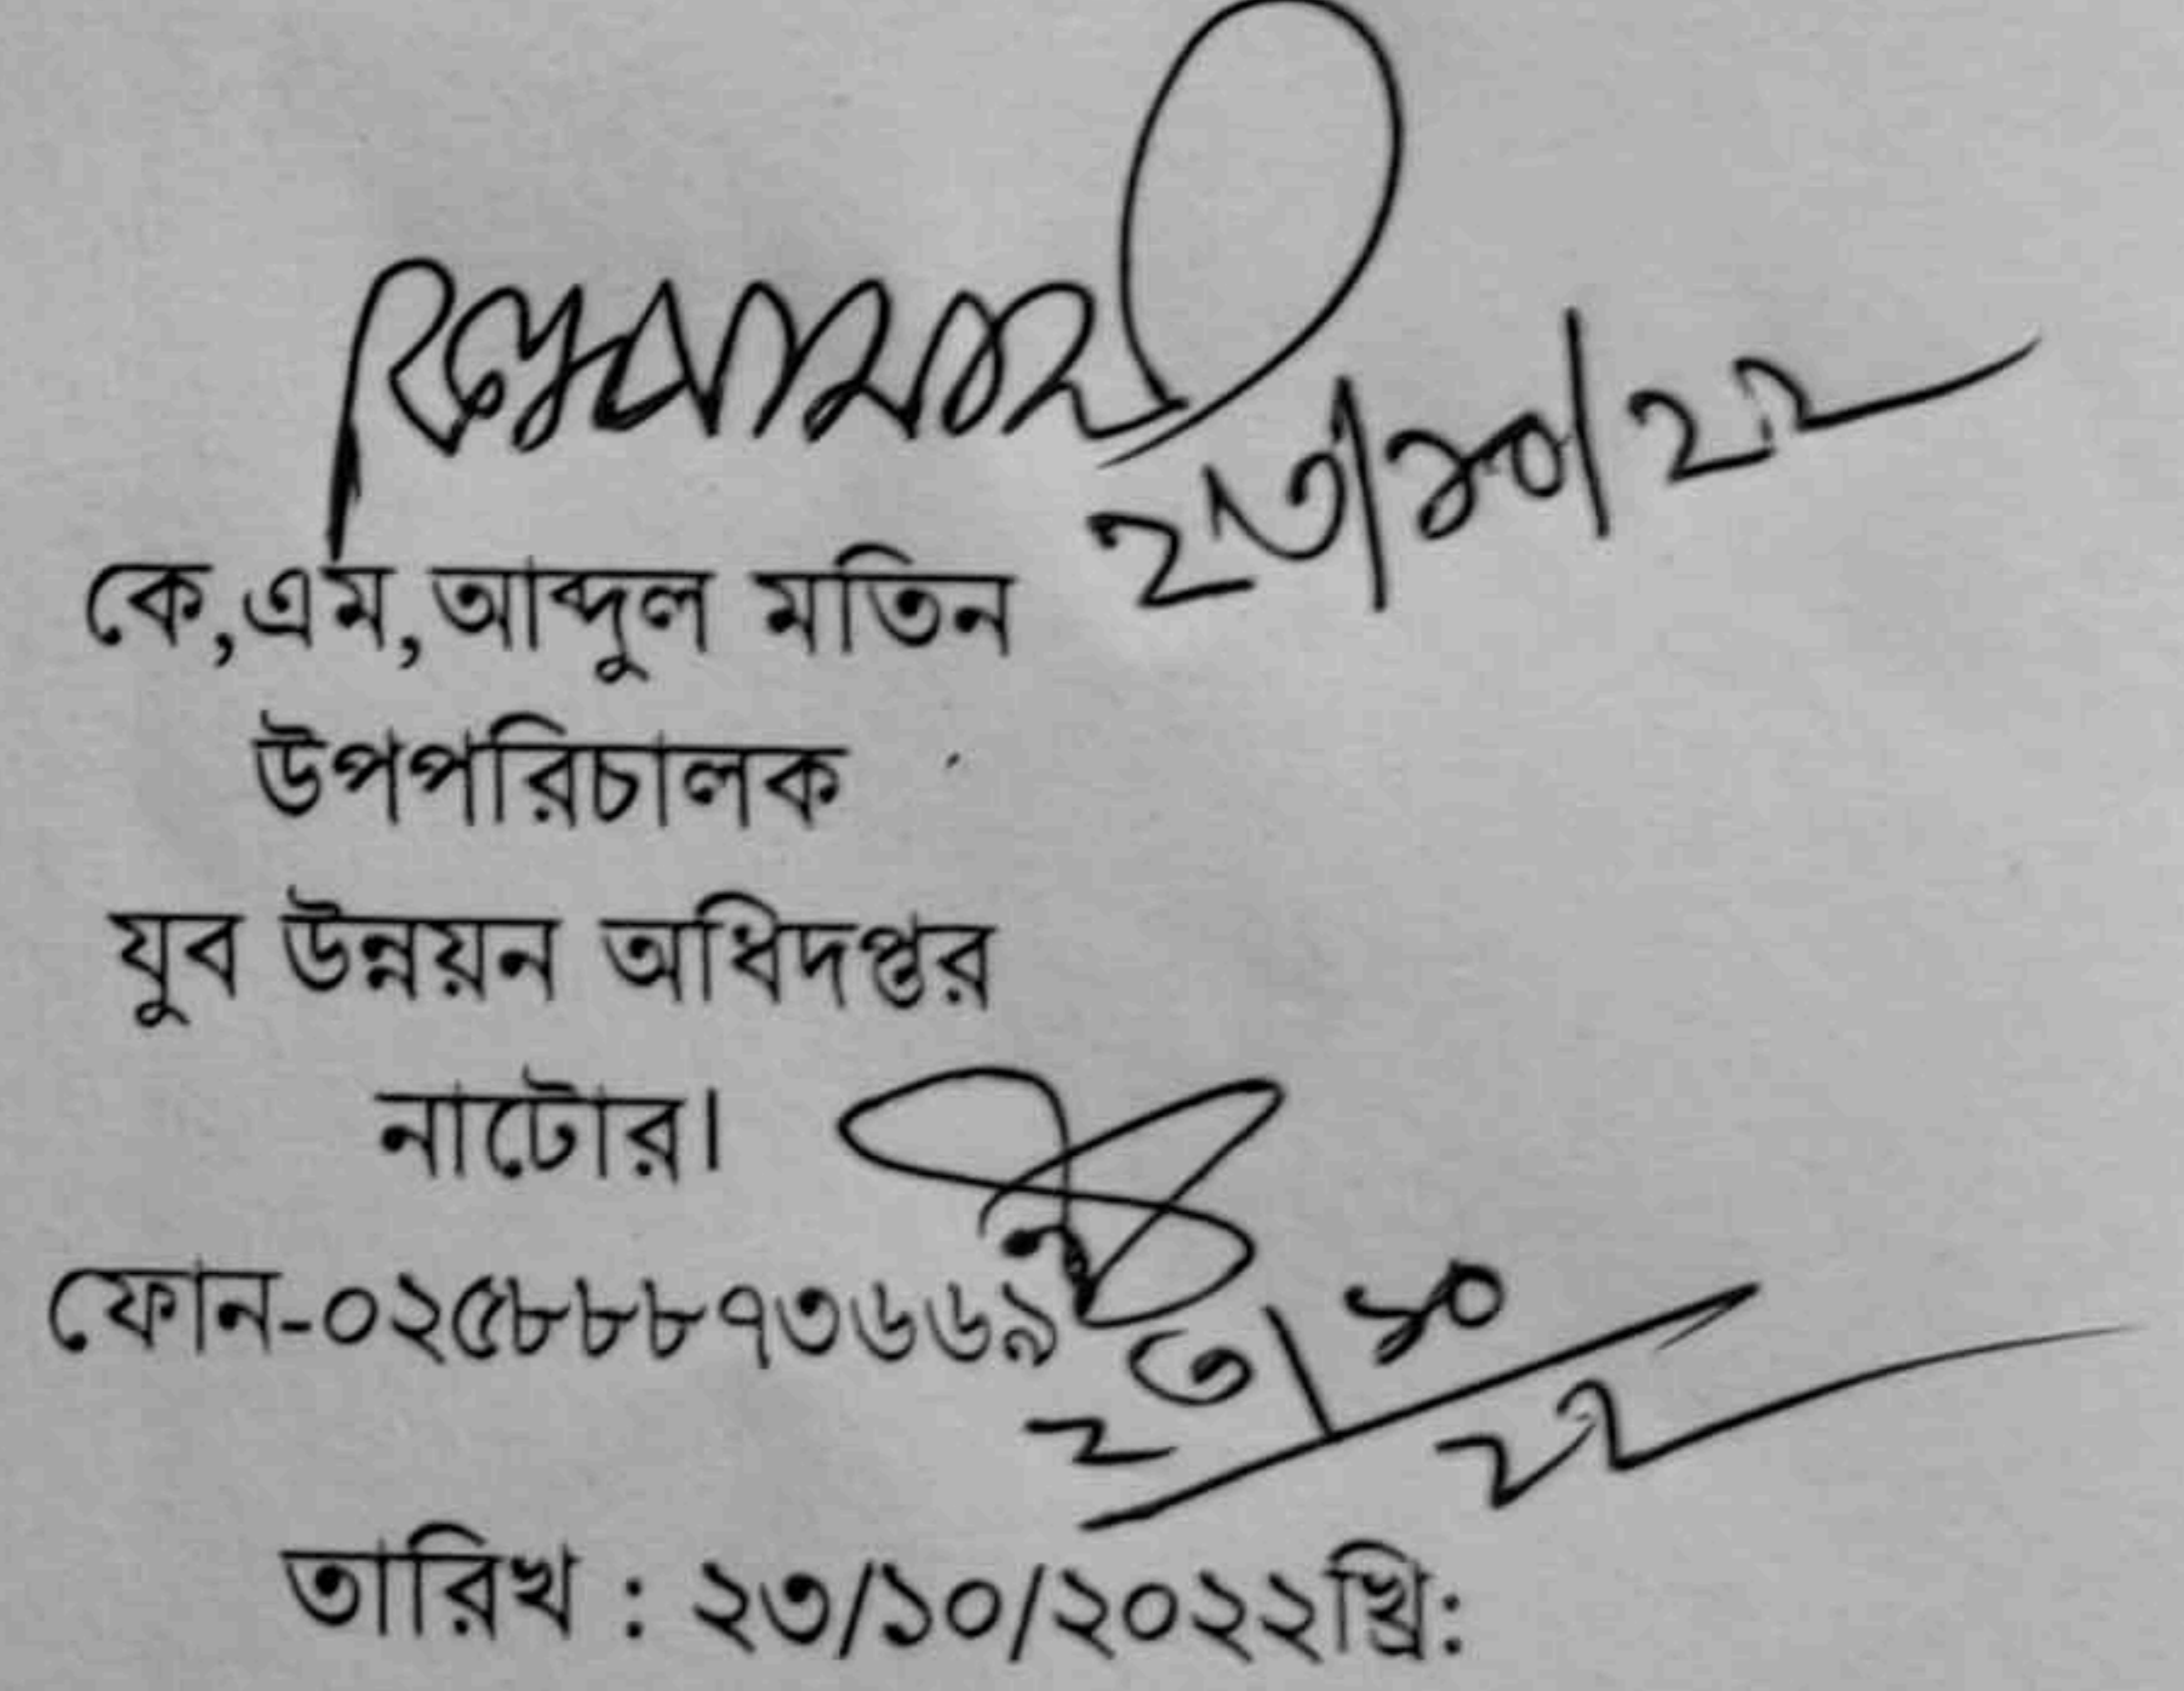 ২৩/১০/২২
কে,এম,আব্দুল মতিন
উপপরিচালক
যুব উন্নয়ন অধিদপ্তর
নাটোর।
ফোন-০২৫৮৮৮৭৩৬৬৯
২৩/১০
২২
তারিখ : ২৩/১০/২০২২খ্রি: